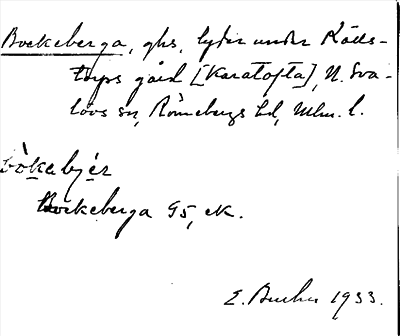 Bockeberga, ghs, lyder under Källs-
torps gård [Karatofta], N. Sva-
lövs sn, Rönnebergs hd, Mlm. l.
bò̀kebjér
Bockeberga 95, ek.
E. 1933.